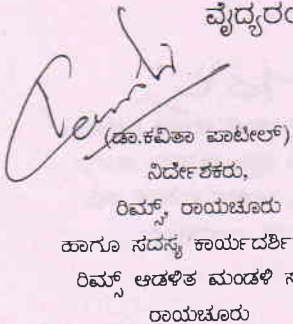 ವೈದ್ಯರಂ
(ಡಾ.ಕವಿತಾ ಪಾಟೀಲ್)
ನಿರ್ದೇಶಕರು,
ರಿಮ್ಸ್, ರಾಯಚೂರು
ಹಾಗೂ ಸದಸ್ಯ ಕಾರ್ಯದರ್ಶಿ
ರಿಮ್ಸ್ ಆಡಳಿತ ಮಂಡಳಿ ಸ
ರಾಯಚೂರು